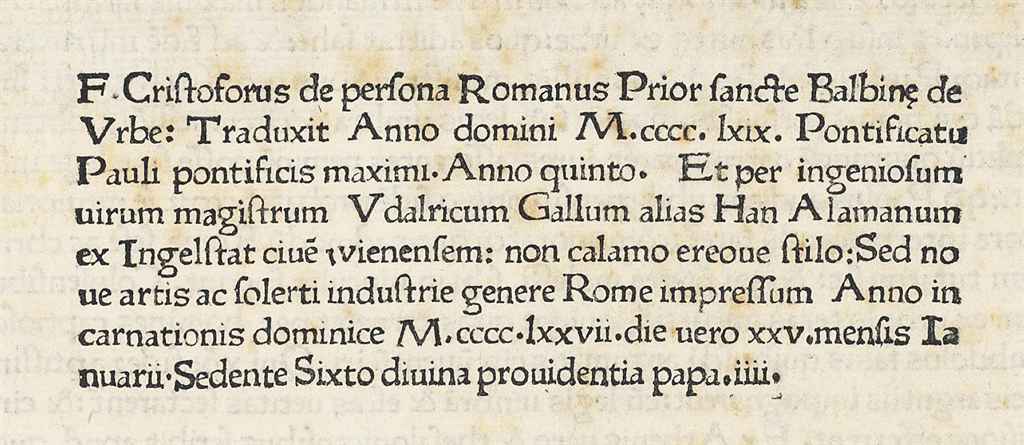 F. Criſtoforus de perſona Romanus Prior ſancte Balbinę de
Vrbe: Traduxit Anno domini M.cccc. lxix. Pontificatu
Pauli pontificis maximi. Anno quinto. Et per ingenioſum
uirum magiſtrum Vdalricum Gallum alias Han Alamanum
ex Ingelſtat ciuē wienenſem: non calamo ereoue ſtilo: Sed no
ue artis ac ſolerti induſtrie genere Rome impreſſum Anno in
carnationis dominice M.cccc.lxxvii.die uero xxv.menſis Ia
nuarii. Sedente Sixto diuina prouidentia papa.iiii.